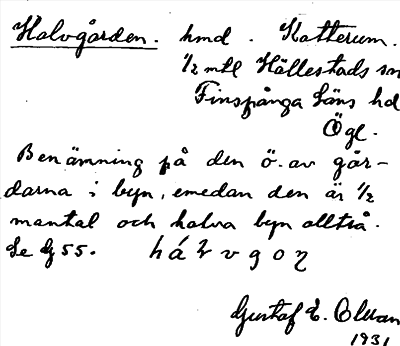 Halvgården. hmd. Katterum.
1/2 mtl Hällestads sn
Finspånga läns hd
Ögl.
Benämning på den ö. av går-
darna i byn, emedan den är 1/2
mantal och halva byn alltså.
Se G 55.
Gustaf E. Olsson
1931